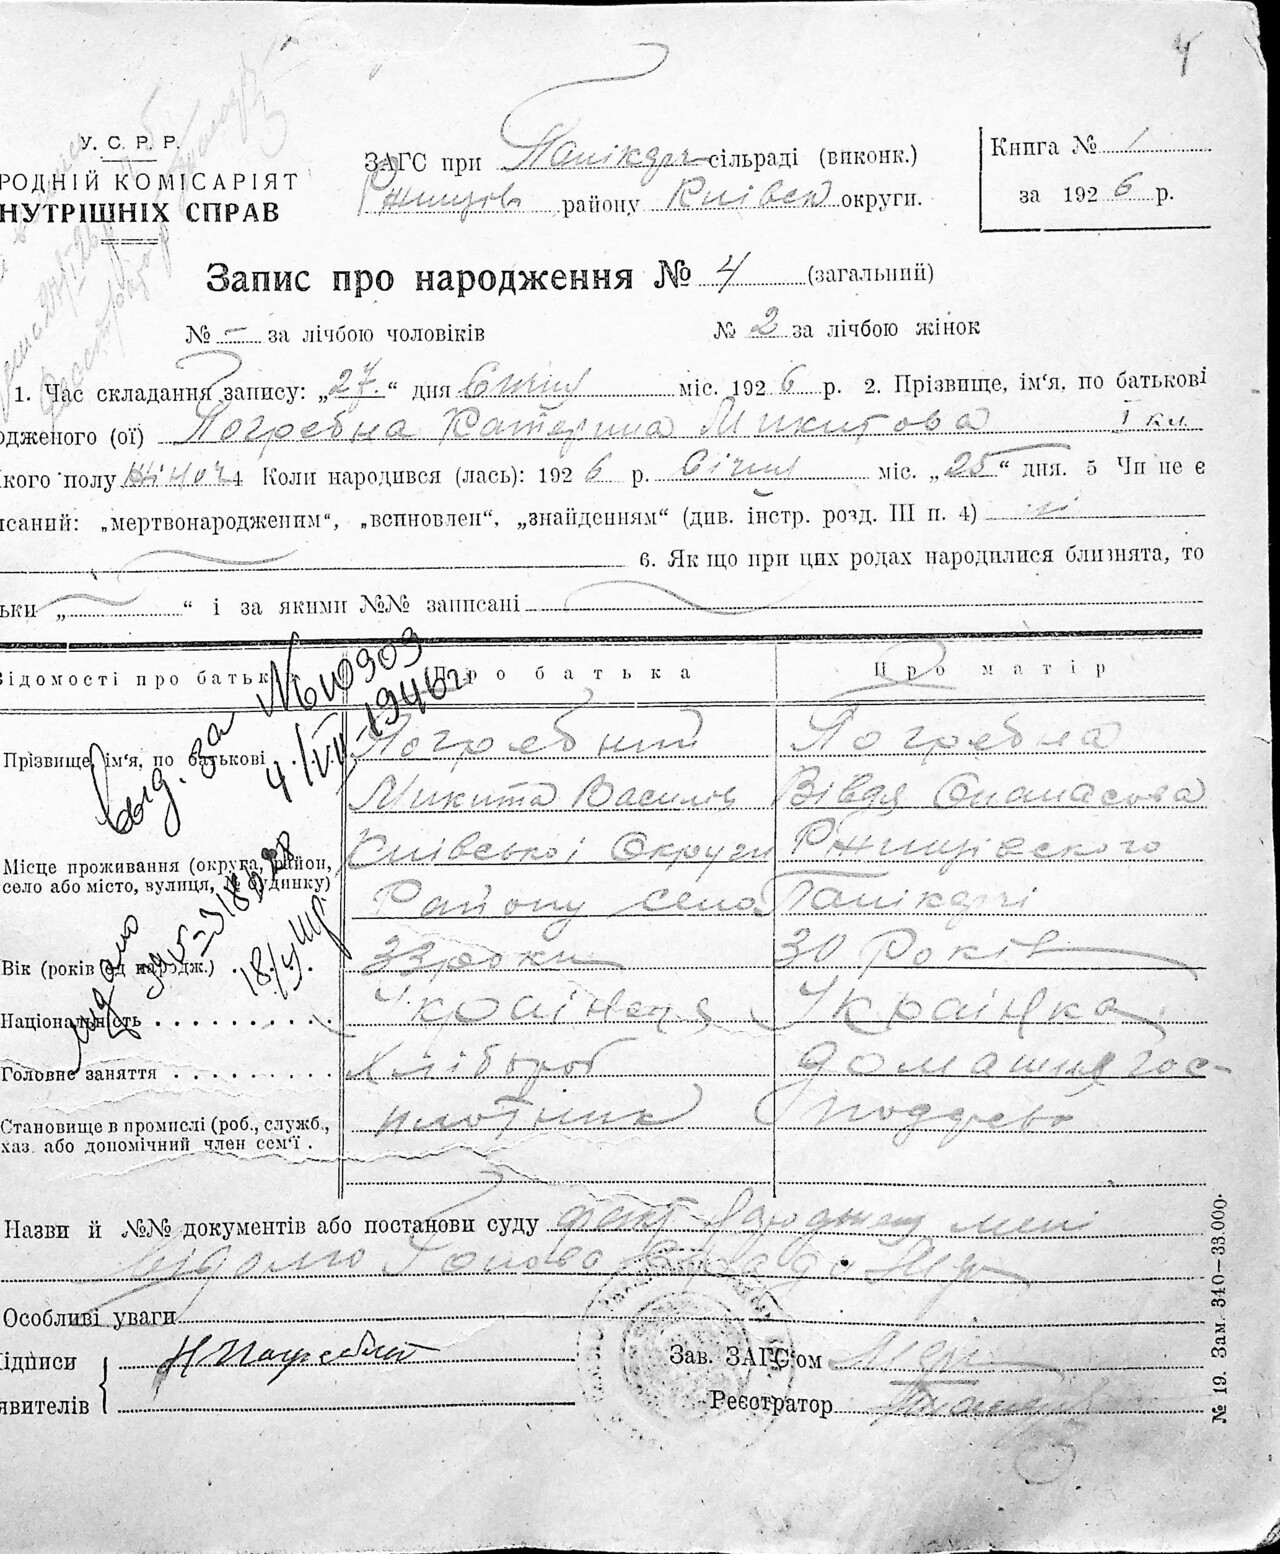 4
У. С. Р. Р.
РОДНІЙ КОМІСАРІЯТ
НУТРІШНІХ СПРАВ
ЗАГС при Папікарн сільраді (виконк.)
Ржищев району Київск округи.
Книга № 1
за 1926 р.
Запис про народження № 4 (загальний)
№ — за лічбою чоловіків № 2 за лічбою жінок
1. Час складання запису: „27.“ дня Січня міс. 1926 р. 2. Прізвище, ім‘я, по батькові
одженого (ої) Погребна Катерина Микитова
кого полу жіноч 4 Коли народився (лась): 1926 р. Січня міс. „25“ дня. 5 Чи не є
исаний: „мертвонародженим“, „всиновлен“, „знайденням“ (див. інстр. розд. III п. 4) ні
6. Як що при цих родах народилися близнята, то
ьки „ “ і за якими №№ записані
Відомості про батьк Про батька Про матір
выд. за № 10303
4/VII 1946г
Прізвище, ім‘я, по батькові Погребний Погребна
Микита Василів Вівдя Опанасова
Місце проживання (округа, район, село або місто, вулиця, № будинку) Київської Округи Ржищівского
Району село Папікарні
Вік (років од народж.) 33 роки 30 Років
Національність Українець Українка
Головне заняття Хлібороб домашнє гос-
Становище в промислі (роб., служб., хаз. або допомічний член сем‘ї плотник подарево
видано
Назви й №№ документів або постанови суду факт народженя мені
відомо Голова
Особливі уваги
ідписи
явителів
Н Погребний
Зав. ЗАГС‘ом
Реєстратор
№ 19. Зам. 340—33.000.